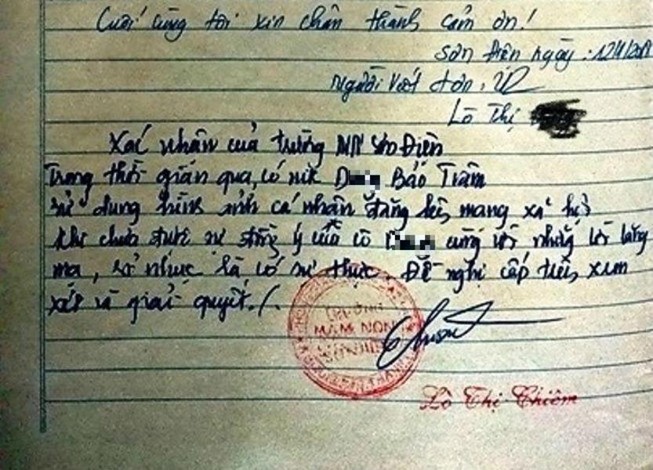 Cuối cùng tôi xin chân thành cảm ơn!
Sơn Điện ngày: 12/4/
Người viết đơn,
Lò Thị
Xác nhận của trường MN Sơn Điện
Trong thời gian qua, có nick D Bảo Trâm
sử dụng hình ảnh cá nhân đăng lên mạng xã hội
khi chưa được sự đồng ý của cô cùng với những lời lăng
mạ, sỉ nhục là có sự thực. Đề nghị cấp trên xem
xét và giải quyết./.
TRƯỜNG
MẦM NON
SƠN ĐIỆN
Lò Thị Chiêm